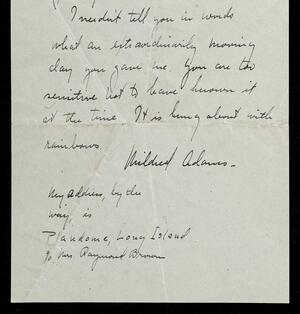 I needn't tell you in words
what an extraordinarily moving
day you gave me. You are too
sensitive not to have known it
at the time. It is hung about with
rainbows.
Mildred Adams.
My address, by the
way, is
Plandome, Long Island
c/o Mrs Raymond Brown